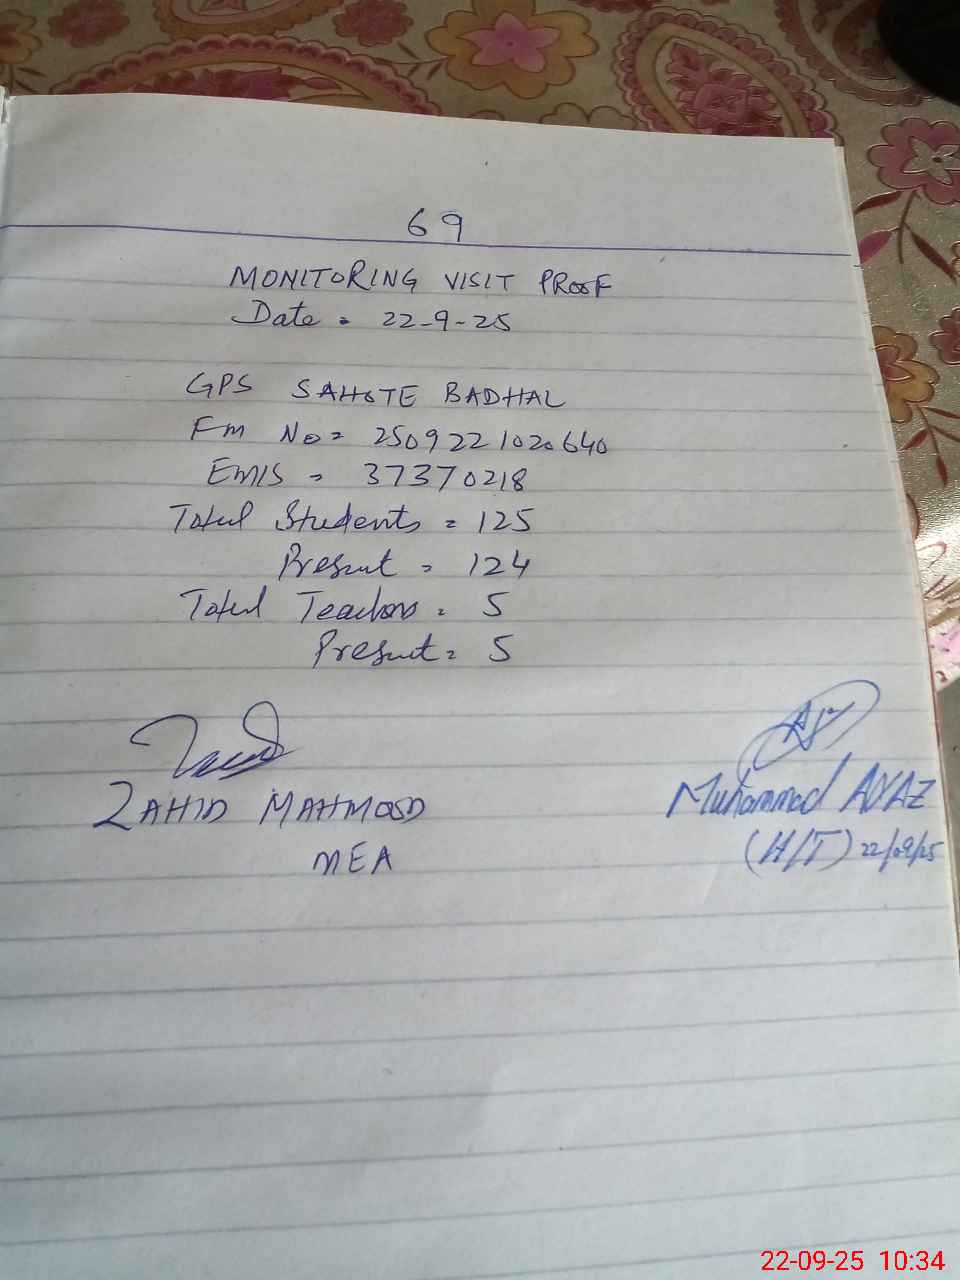 69
MONITORING VISIT PROOF
Date = 22-9-25
GPS SAHOTE BADHAL
Fm No = 2509221020640
EMIS = 37370218
Total Students = 125
Present = 124
Total Teachers = 5
Present = 5
ZAHID MAHMOOD
MEA
Muhammad AYAZ
(H/T) 22/09/25
22-09-25 10:34